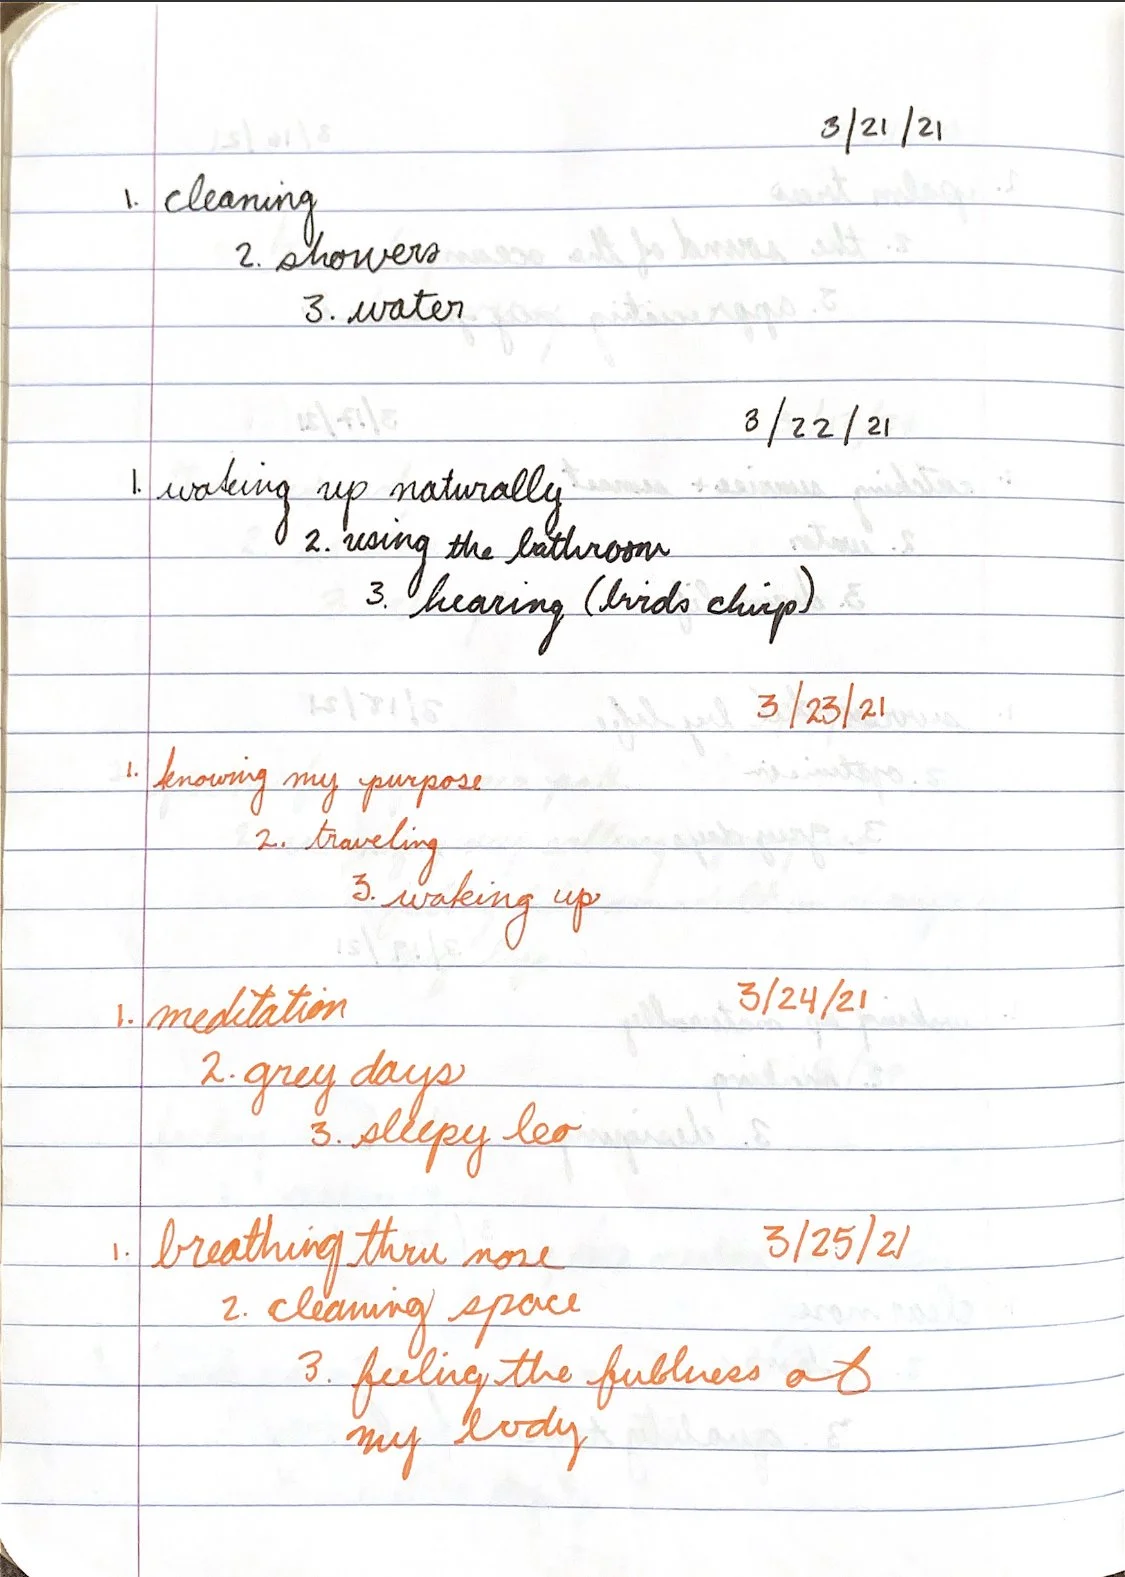 3/21/21
1. cleaning
2. showers
3. water
3/22/21
1. waking up naturally
2. using the bathroom
3. hearing (birds chirp)
3/23/21
1. knowing my purpose
2. traveling
3. waking up
3/24/21
1. meditation
2. grey days
3. sleepy leo
3/25/21
1. breathing thru nose
2. cleaning space
3. feeling the fullness of
my body